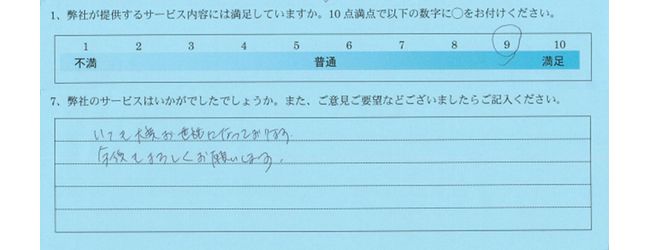 1、弊社が提供するサービス内容には満足していますか。10点満点で以下の数字に○をお付けください。
1 2 3 4 5 6 7 8 9 10
不満 普通 満足
7、弊社のサービスはいかがでしたでしょうか。また、ご意見ご要望などございましたらご記入ください。
いつも大変お世話になっております。
今後もよろしくお願いします。